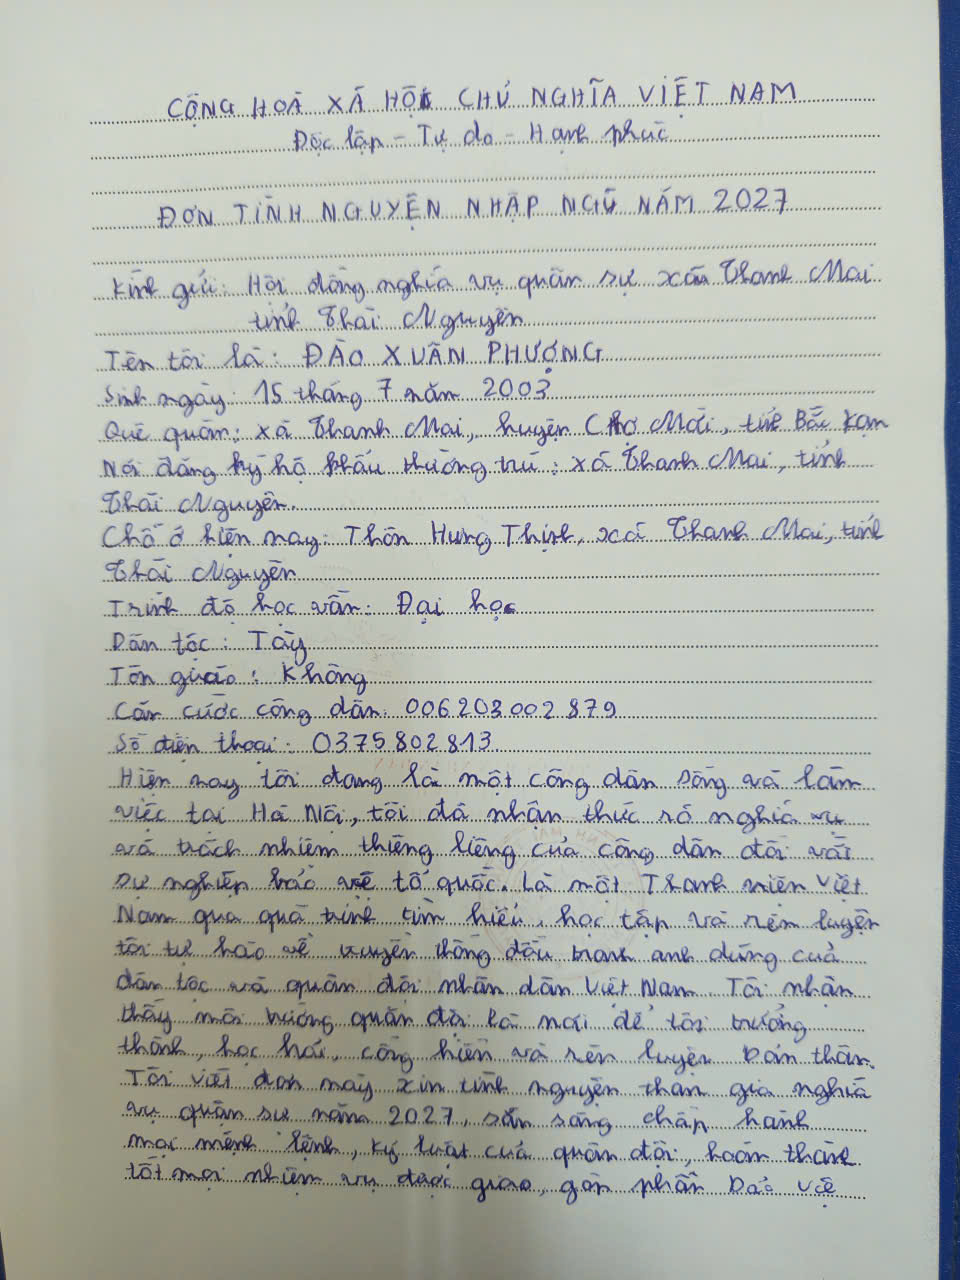 CỘNG HOÀ XÃ HỘI CHỦ NGHĨA VIỆT NAM
Độc lập - Tự do - Hạnh phúc
ĐƠN TÌNH NGUYỆN NHẬP NGŨ NĂM 2027
Kính gửi: Hội đồng nghĩa vụ quân sự xã Thanh Mai
tỉnh Thái Nguyên
Tên tôi là: ĐÀO XUÂN PHƯỢNG
Sinh ngày: 15 tháng 7 năm 2003
Quê quán: xã Thanh Mai, huyện Chợ Mới, tỉnh Bắc Kạn
Nơi đăng ký hộ khẩu thường trú: xã Thanh Mai, tỉnh
Thái Nguyên.
Chỗ ở hiện nay: Thôn Hưng Thịnh, xã Thanh Mai, tỉnh
Thái Nguyên
Trình độ học vấn: Đại học
Dân tộc: Tày
Tôn giáo: Không
Căn cước công dân: 006203002879
Số điện thoại: 0375802813
Hiện nay tôi đang là một công dân sống và làm
việc tại Hà Nội, tôi đã nhận thức rõ nghĩa vụ
và trách nhiệm thiêng liêng của công dân đối với
sự nghiệp bảo vệ tổ quốc. Là một Thanh niên Việt
Nam qua quá trình tìm hiểu, học tập và rèn luyện
tôi tự hào về truyền thống đấu tranh anh dũng của
dân tộc và quân đội nhân dân Việt Nam. Tôi nhận
thấy môi trường quân đội là nơi để tôi trưởng
thành, học hỏi, cống hiến và rèn luyện bản thân.
Tôi viết đơn này xin tình nguyện tham gia nghĩa
vụ quân sự năm 2027, sẵn sàng chấp hành
mọi mệnh lệnh, kỷ luật của quân đội, hoàn thành
tốt mọi nhiệm vụ được giao, góp phần bảo vệ